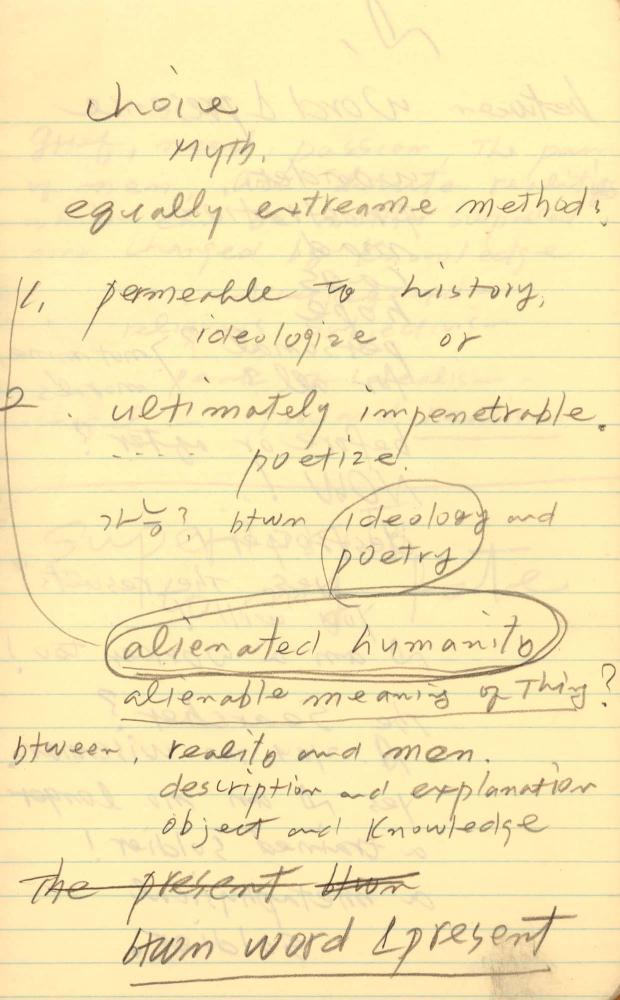 choice
Myth.
equally extreame methods
1. permeable to history,
ideologize or
2. ultimately impenetrable.
poetize.
가능? btwn ideology and
poetry
alienated humanity
alienable meaning of Thing?
btween, reality and men.
description and explanation
object and Knowledge
The present btwn
btwn word & present